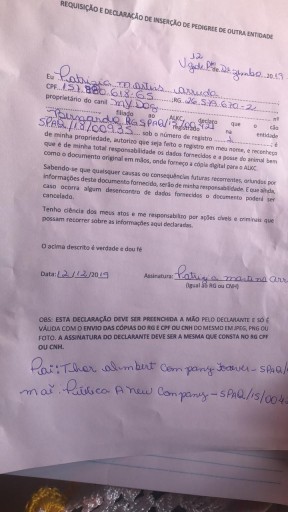 REQUISIÇÃO E DECLARAÇÃO DE INSERÇÃO DE PEDIGREE DE OUTRA ENTIDADE
12 de Dezembro 2019
Eu Patrizia martins arruda
CPF. 151.880.618-65 ,RG
proprietário do canil my Dog nº
filiado ao ALKC, declara que o cão
registrado na entidade
SPAQ/18/00935 sob o número de registro , é
de minha propriedade, autorizo que seja feito o registro em meu nome, e reconheço
que é de minha total responsabilidade os dados fornecidos e a posse do animal bem
como o documento original em mãos, onde forneço a cópia digital para o ALKC.
Sabendo-se que quaisquer causas ou consequências futuras recorrentes, oriundos por
informações deste documento fornecido, serão de minha responsabilidade. E que ainda,
caso ocorra algum desencontro de dados fornecidos o documento poderá ser
cancelado.
Tenho ciência dos meus atos e me responsabilizo por ações cíveis e criminais que
possam recorrer sobre as informações aqui declaradas.
O acima descrito é verdade e dou fé
Data: 12/12/2019 Assinatura: Patrizia martins arr
(Igual ao RG ou CNH)
OBS: ESTA DECLARAÇÃO DEVE SER PREENCHIDA A MÃO PELO DECLARANTE E SÓ É
VÁLIDA COM O ENVIO DAS CÓPIAS DO RG E CPF OU CNH DO MESMO EM JPEG, PNG OU
FOTO. A ASSINATURA DO DECLARANTE DEVE SER A MESMA QUE CONSTA NO RG CPF
OU CNH.
Pai: Thor Company - SPAQ/
mãe: A new Company - SPAQ/15/004